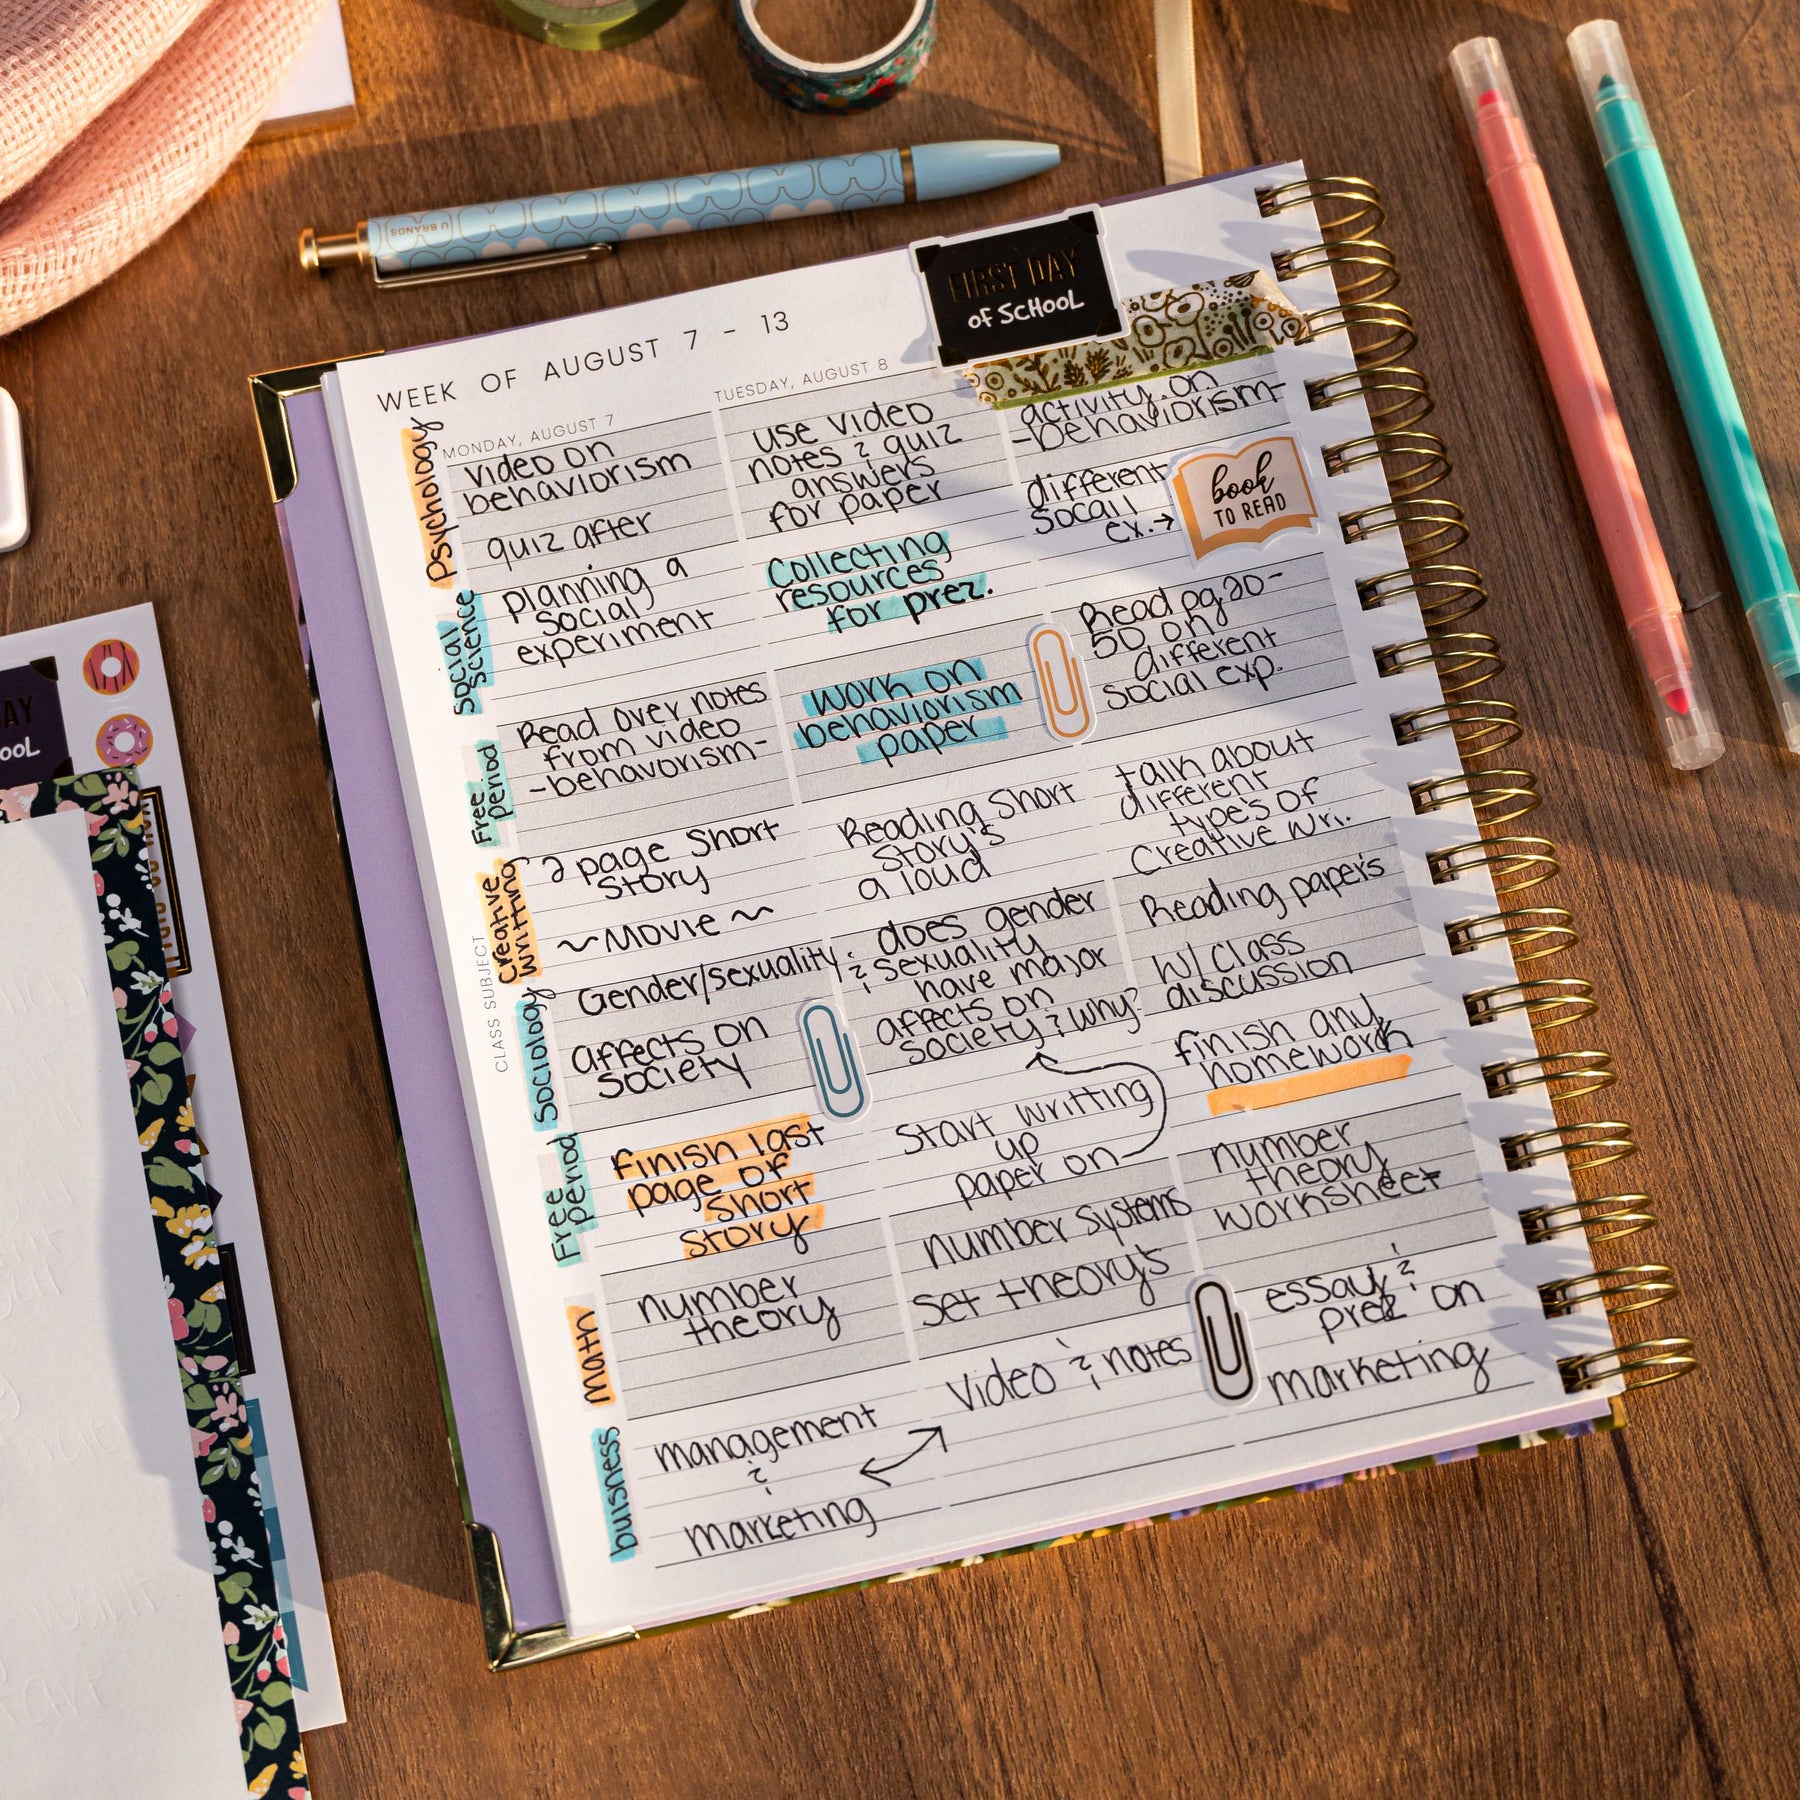 U BRANDS
FIRST DAY
OF SCHOOL
WEEK OF AUGUST 7 - 13
MONDAY, AUGUST 7
TUESDAY, AUGUST 8
CLASS SUBJECT
Psychology
video on
behaviorism
quiz after
use video
notes & quiz
answers
for paper
activity on
-behaviorism-
Social
Science
planning a
social
experiment
Collecting
resources
for prez.
different
socail
ex.→
book
TO READ
Free
period
Read over notes
from video
-behavorism-
work on
behaviorism
paper
Read pg 20-
50 on
different
social exp.
Creative
writting
2 page short
story
~Movie~
Reading short
story's
a loud
talk about
different
type's of
Creative wri.
Sociology
Gender/sexuality
affects on
society
does gender
& sexuality
have major
affects on
society & why?
Reading paper's
w/ class
discussion
Free
period
finish last
page of
short
story
Start writting
up
paper on
finish any
homework
math
number
theory
number systems
set theory's
number
theory
worksheet
buisness
management
&
marketing
video & notes
essay &
prez on
marketing
AY
OOL